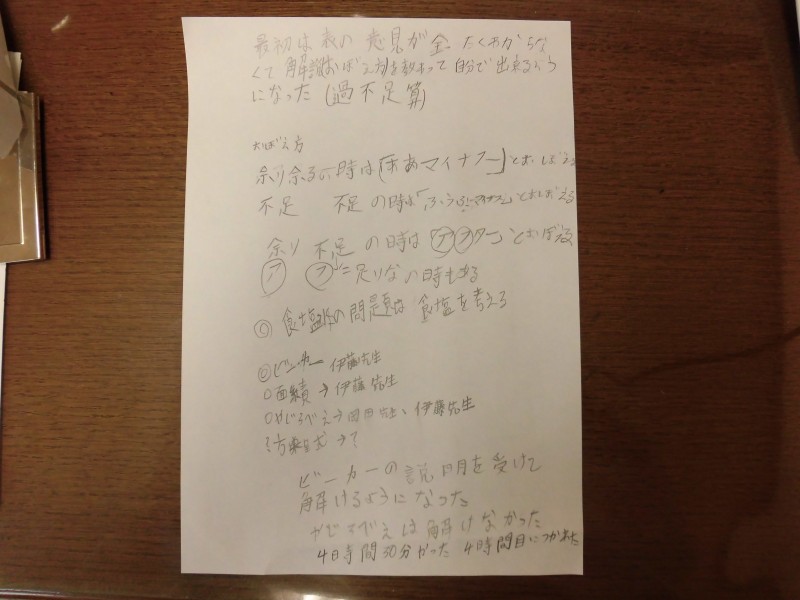 最初は表の意見が全たくわからな
くて解説おぼえ方を教わって自分で出来るよう
になった (過不足算)
おぼえ方
余り余るの時は「あまマイナナー」とおぼえる
不足 不足の時は「ふうぶマイナスン」とおぼえる
余り 不足の時は とおぼえる
ア フ=足りなの時もある
◎食塩水の問題は食塩を考える
◎ビーカー 伊藤先生
○面績→伊藤先生
○やじろべえ→ 先生、伊藤先生
方楽日式→?
ビーカーの説明を受けて
解けるようになった
やじろべえは解けなかった
4日時間30分かった 4時間目につかれた